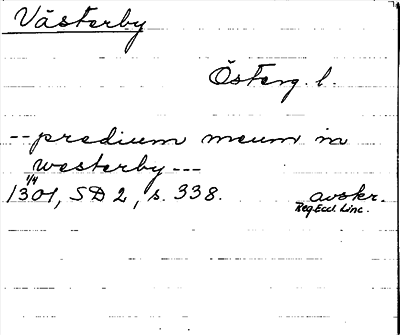 Västerby
Österg. l.
-- predium meum in
westerby ---
1/4
1301, SD 2, s. 338. avskr.
Reg. Eccl. Linc.